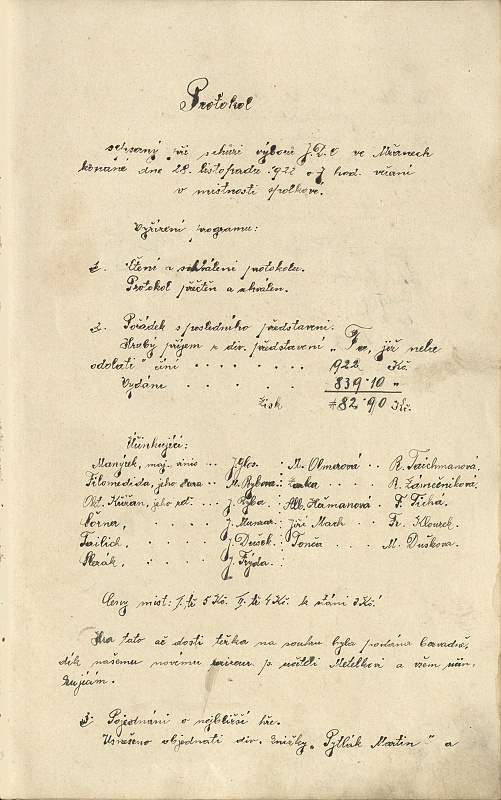 Protokol
sepsaný při schůzi výboru J.D.O ve Mžanech
konané dne 28. listopadu 1922 o 7 hod. večerní
v místnosti spolkové.
Vyřízení programu:
1. Čtení a schválení protokolu.
Protokol přečten a schválen.
2. Pořádek s posledního představení.
Hrubý příjem z div. představení „Ta, již nelze
odolati" činí . . . . . . 922 Kč
Vydání . . . . . . 839·10 „
Zisk +82·90 Kč.
Účinkující:
Manýrek, maj. vinic .. J. Glos. : M. Olmerová .. R. Taichmanová.
Filomedida, jeho .. M. Rybová : Lenka .. R. Zámečníková.
Okt. Křižan, jeho .. J. Ryba : Alb. Heřmanová .. F. Tichá.
Černa, .. J. : Jiří Mach .. Fr. Klouček.
.. J. Dušek : Tonča .. M. Dušková.
. J. Frýda.
Ceny míst: I. tř 5 Kč. II. tř 4 Kč. k stání 3 Kč.
Hra tato ač dosti těžka na souhru byla podána bezvadně,
dík našemu novému p. učiteli Metelkovi a všem účin-
kujícím.
3. Pojednání o nejbližší hře.
Usnešeno objednati div. knížky „Pytlák Martin" a